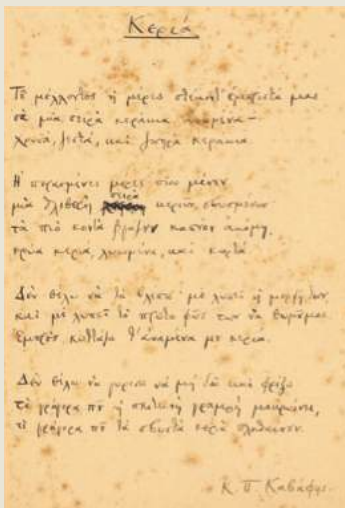 Κεριά
Τοῦ μέλλοντος ἡ μέρες στέκοντ' ἐμπροστά μας
σὰ μιὰ σειρὰ κεράκια ἀναμένα —
χρυσά, ζεστά, καὶ ζωηρὰ κεράκια.
Ἡ περασμένες μέρες πίσω μένουν,
μιὰ θλιβερὴ σειρὰ κεριῶν σβυσμένων
τὰ πιὸ κοντὰ βγάζουν καπνὸν ἀκόμη,
κρύα κεριά, λυωμένα, καὶ κυρτά.
Δὲν θέλω νὰ τὰ βλέπω· μὲ λυπεῖ ἡ μορφή των,
καὶ μὲ λυπεῖ τὸ πρῶτο φῶς των νὰ θυμοῦμαι.
Ἐμπρὸς κυττάζω τ' ἀναμένα μου κεριά.
Δὲν θέλω νὰ γυρίσω νὰ μὴ διῶ καὶ φρίξω
τί γρήγορα ποῦ ἡ σκοτεινὴ γραμμὴ μακραίνει,
τί γρήγορα ποῦ τὰ σβυστὰ κεριὰ πληθαίνουν.
Κ. Π. Καβάφης